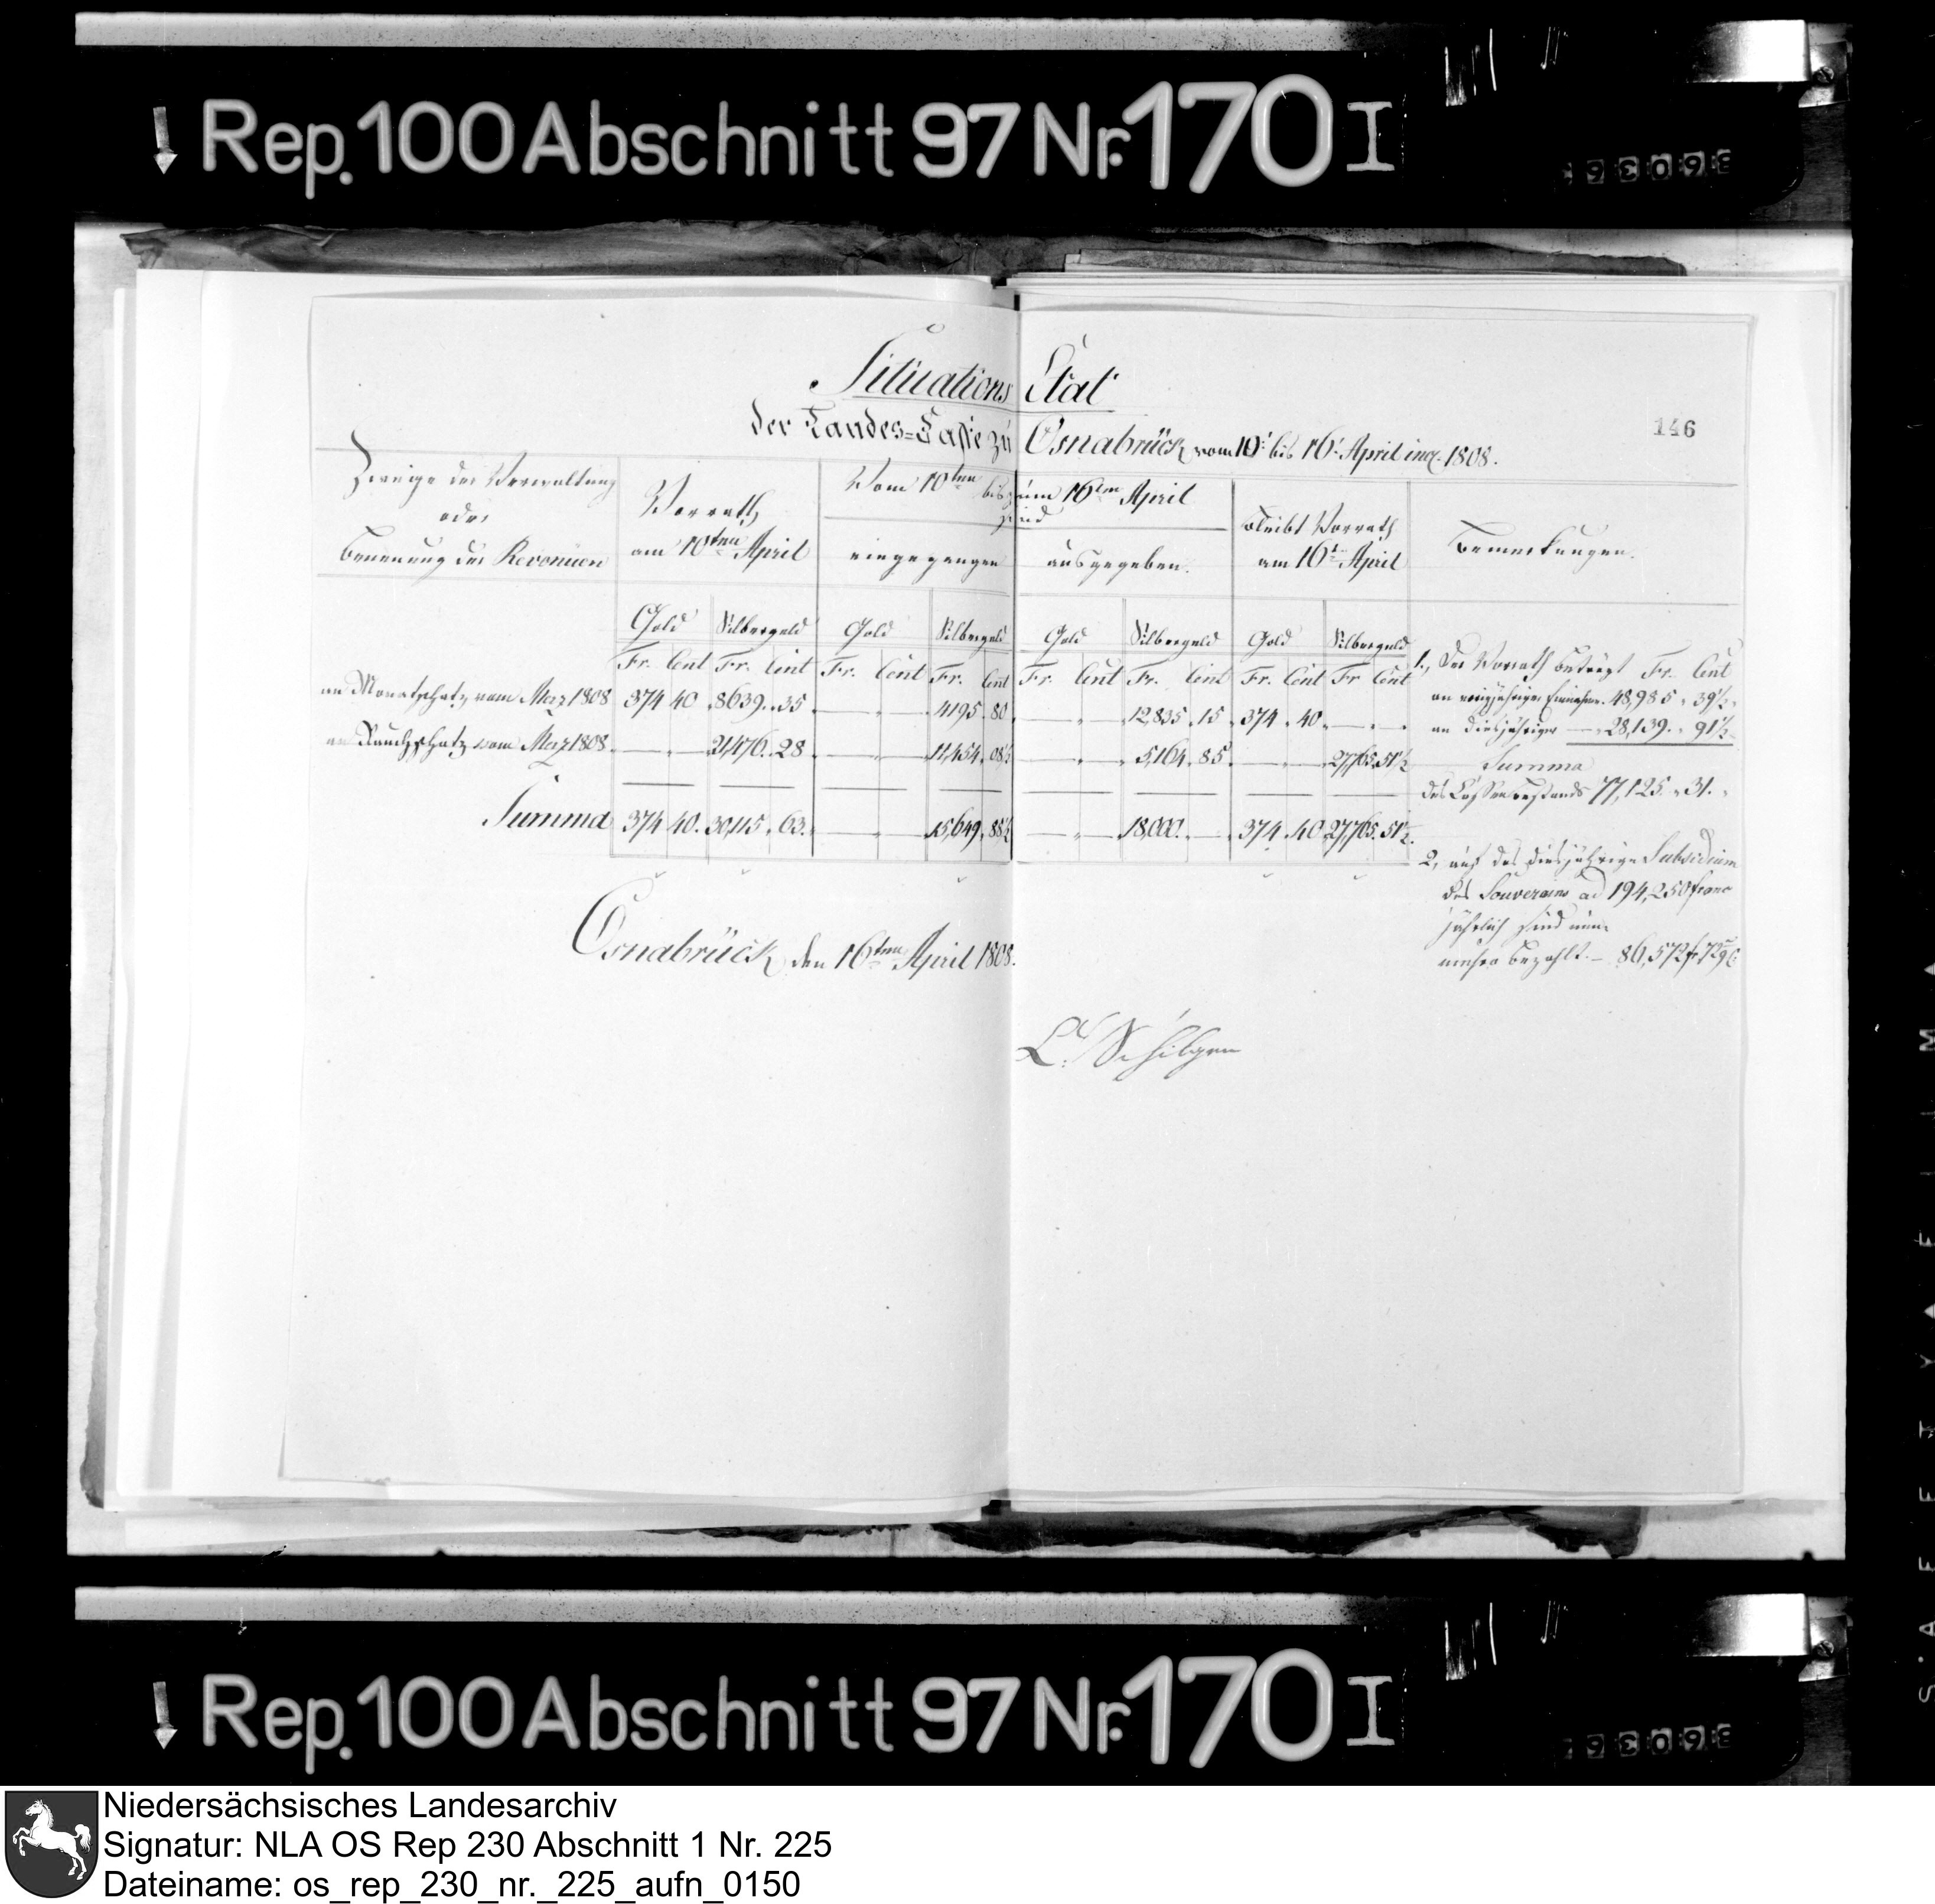 Rep. 100 Abschnitt 97 Nr. 170 I
Situations Etat
146
der Landes=Casse zu Osnabrück vom 10t bis 16t April incl. 1808.
Zweige der Verwaltung
oder
Benennung der Revenüen
Vorrath
am 10ten April
Vom 10ten bis zum 16ten April
sind
eingegangen
ausgegeben.
bleibt Vorrath
am 16t April
Bemerkungen.
Gold Silbergeld Gold Silbergeld Gold Silbergeld Gold Silbergeld
Fr. Cent Fr. Cent Fr. Cent Fr. Cent Fr. Cent Fr. Cent Fr. Cent Fr Cent
an Monatschatz vom Merz 1808 374 40 8639. 35 — — 4195 80 — — 12,835 15 374 40 — —
an Rauchschatz vom Merz 1808 — — 21,476. 28 — — 11,454. 08½ — — 5,164. 85 — — 27,765. 51½
Summa 374 40. 30,115. 63. — — 15,649. 88½ — — 18,000. — 374. 40 27,765. 51½.
1., Der Vorrath beträgt Fr. Cent
an vorigjähriger Einnahme. 48,985 " 39½ "
an diesjähriger — 28,139. " 91½ "
Summa
des Cassenbestands 77,125. " 31. "
2, auf das diesjährige Subsidium
des Souverains ad 194,250 franc
jährlich sind nun-
mehro bezahlt. — 86,572 fr 72 C
Osnabrück den 16ten April 1808.
Schilgen
Rep. 100 Abschnitt 97 Nr. 170 I
Niedersächsisches Landesarchiv
Signatur: NLA OS Rep 230 Abschnitt 1 Nr. 225
Dateiname: os_rep_230_nr._225_aufn_0150